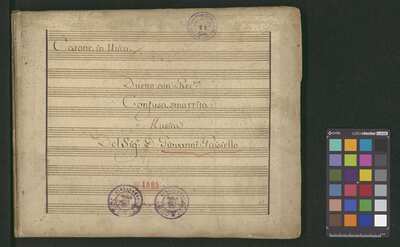 Catone in Utica
Duetto con Rec.vo
Confusa smarrita
Musica
Del Sig.r D. Giovanni Paisiello